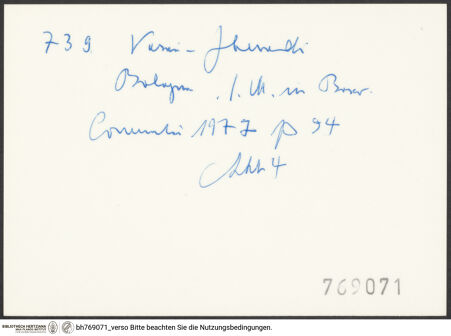 739 Vasari-Gherardi
Bologna, S. M. in Bosc.
Commentari 1977 p 94
Abb 4
769071
BIBLIOTHECA HERTZIANA
bh769071_verso Bitte beachten Sie die Nutzungsbedingungen.